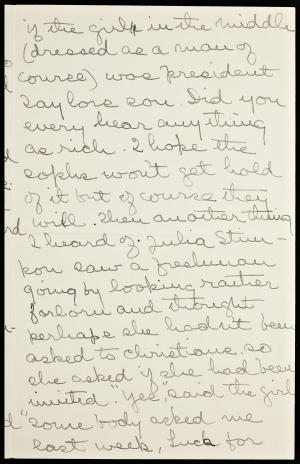 if the girl in the middle
(dressed as a man of
course) was President
Taylors son. Did you
every hear anything
as rich. I hope the
sophs won't get hold
of it but of course they
will. Then another thing
I heard of. Julia Stim-
son saw a freshman
going by looking rather
forlorn and thought
perhaps she hadn't been
asked to christians. so
she asked if she had been
invited. "Yes," said the girl
"some body asked me
last week,
for